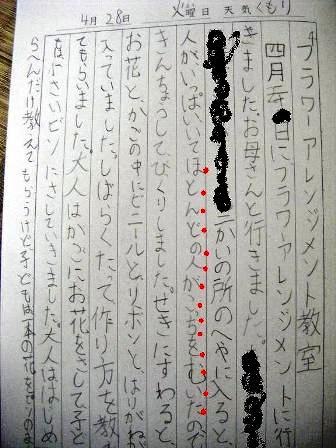 4月28日 火曜日 天気くもり
フラワーアレンジメント教室
四月 日にフラワーアレンジメントに行
きました。お母さんと行きました。
二かいの所のへやに入ると
人がいっぱいいてほとんどの人がこっちをむいたので
きんちょうしてびくりしました。せきにすわると
お花と、かごの中にビニールとリボンと、はりがね
入っていました。しばらくたて作り方を教
てもらいました。大人はかごにお花をさして子ど
はにさいビンにさしていきました。大人ははじめ
らへんだけ教えてもらうけど子どもは一本の花を